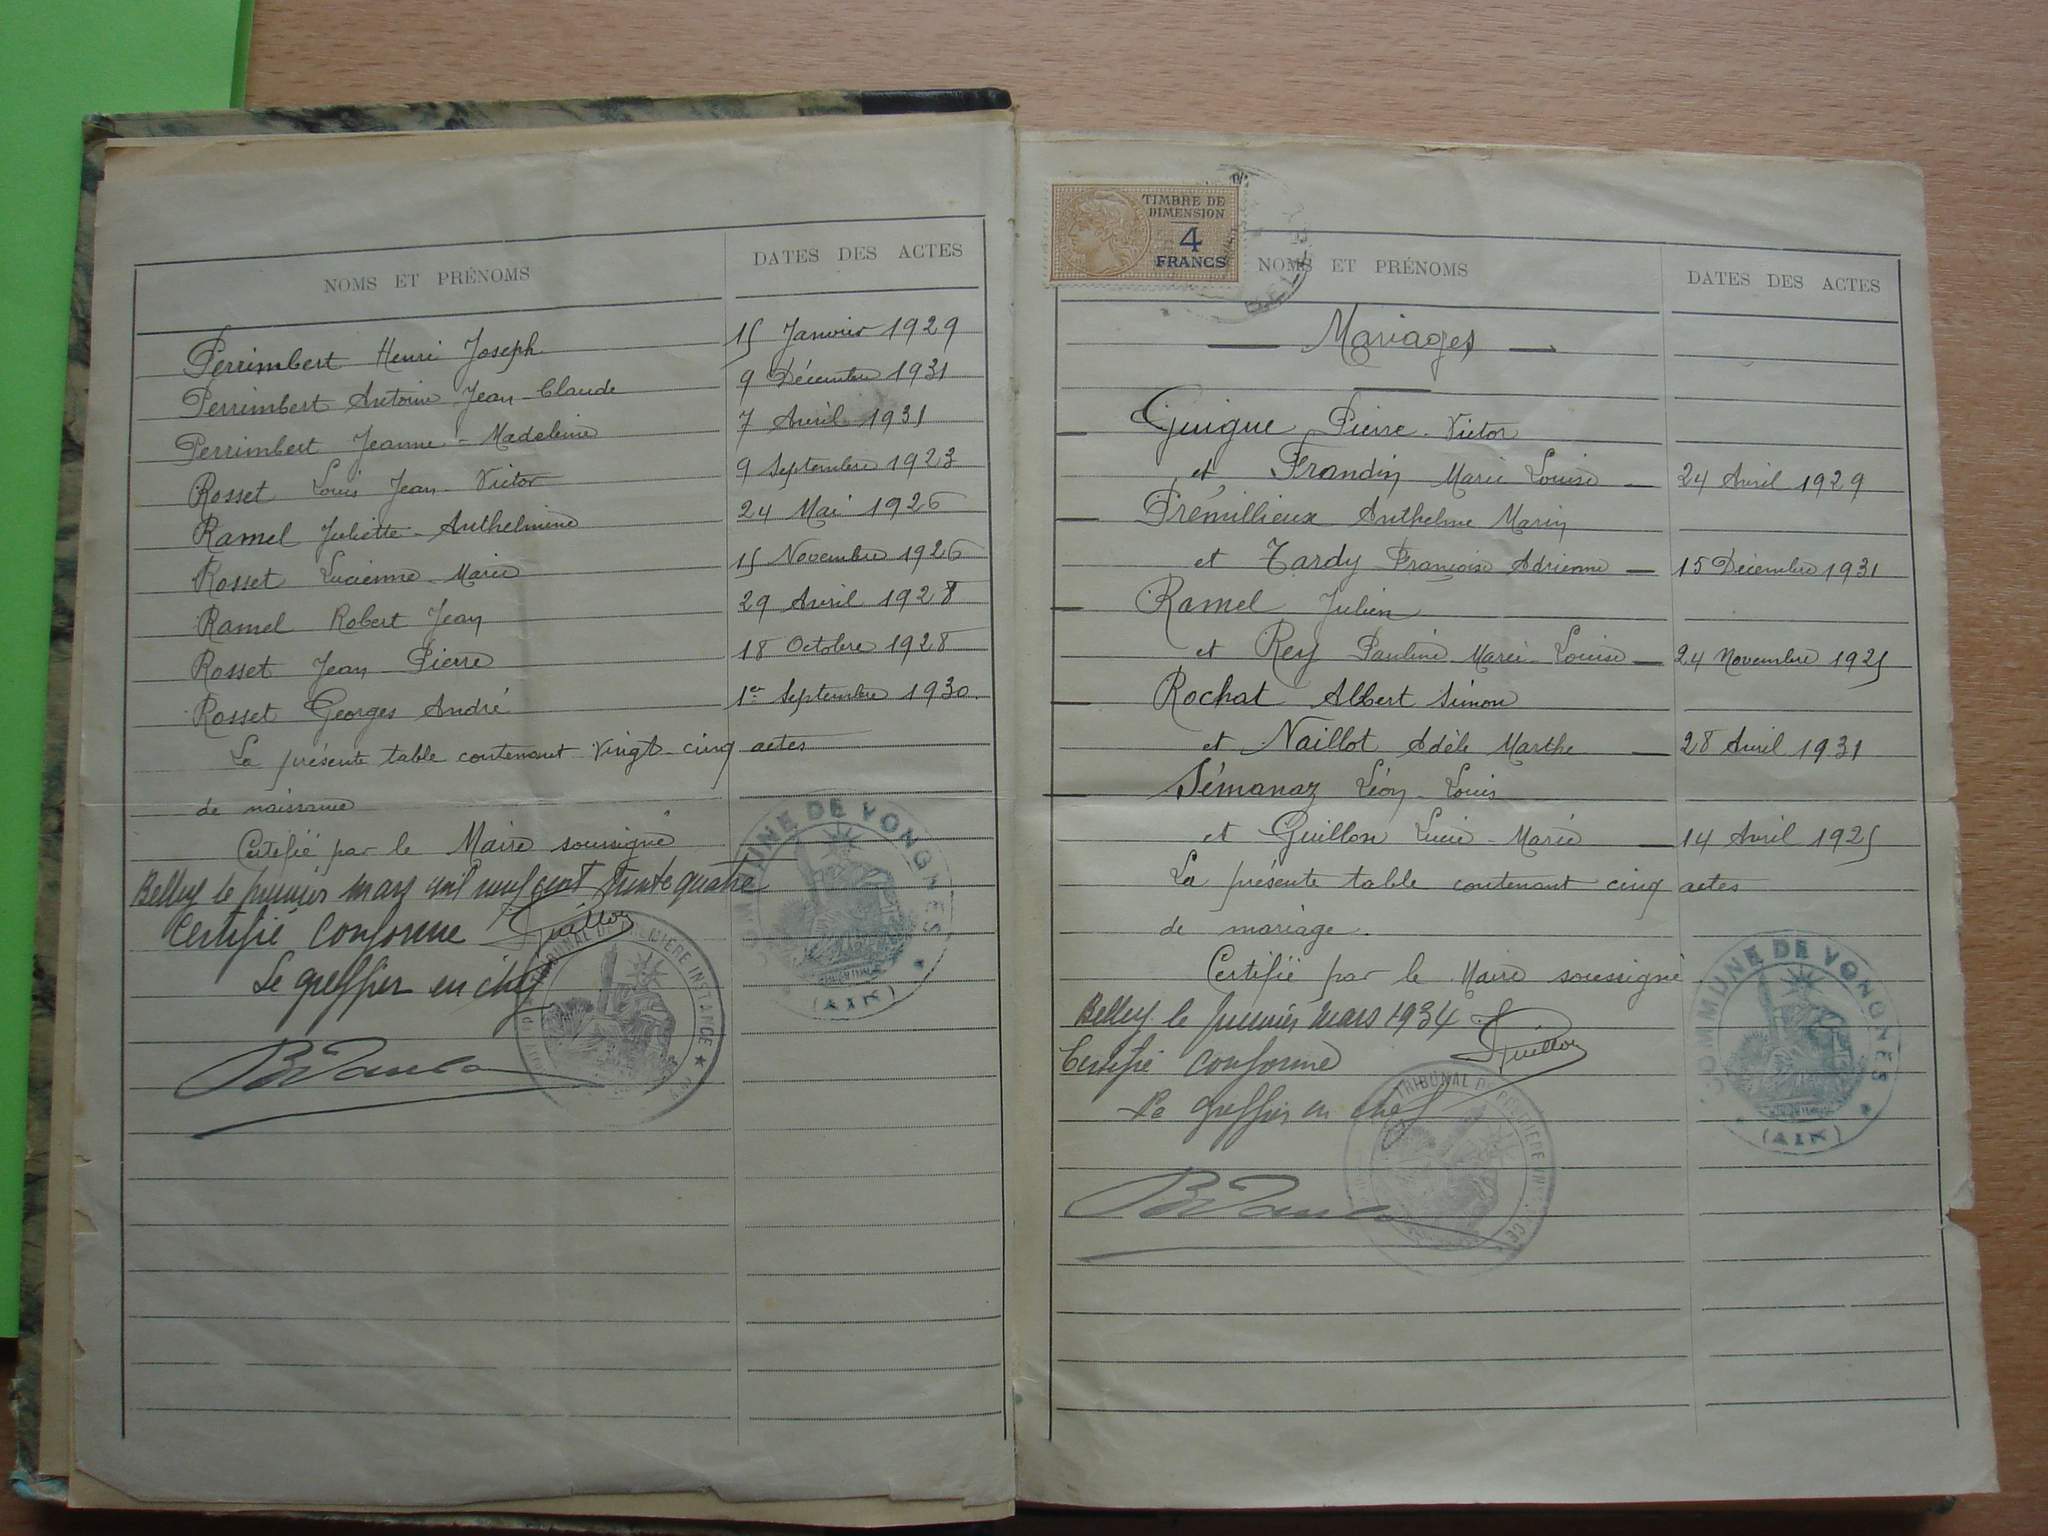 NOMS ET PRÉNOMS DATES DES ACTES
Perrimbert Henri Joseph 15 Janvier 1929
Perrimbert Antoine Jean-Claude 9 Décembre 1931
Perrimbert Jeanne-Madeleine 7 Avril 1931
Rosset Louis Jean-Victor 9 Septembre 1923
Ramel Juliette-Anthelmine 24 Mai 1926
Rosset Lucienne-Marie 15 Novembre 1926
Ramel Robert Jean 29 Avril 1928
Rosset Jean Pierre 18 Octobre 1928
Rosset Georges André 1er Septembre 1930.
La présente table contenant vingt-cinq actes
de naissance
Certifié par le Maire soussigné
Belley le premier mars mil neuf cent trente quatre
Certifié conforme Guillon
Le greffier en chef
COMMUNE DE VONGNES
(AIN)
TRIBUNAL DE PREMIERE INSTANCE
TIMBRE DE
DIMENSION
4
FRANCS
NOMS ET PRÉNOMS DATES DES ACTES
— Mariages —
— Guigue Pierre-Victor
et Frandin Marie Louise — 24 Avril 1929
— Prémillieux Anthelme Marin
et Tardy Françoise Adrienne — 15 Décembre 1931
— Ramel Julien
et Rey Pauline-Marie-Louise — 24 Novembre 1925
— Rochat Albert Simon
et Naillot Adèle Marthe — 28 Avril 1931
— Sémanaz Léon-Louis
et Guillon Lucie-Marie — 14 Avril 1925
La présente table contenant cinq actes
de mariage.
Certifié par le Maire soussigné
Belley le premier mars 1934 Guillon
Certifié conforme
Le greffier en chef
COMMUNE DE VONGNES
(AIN)
TRIBUNAL DE PREMIERE INSTANCE